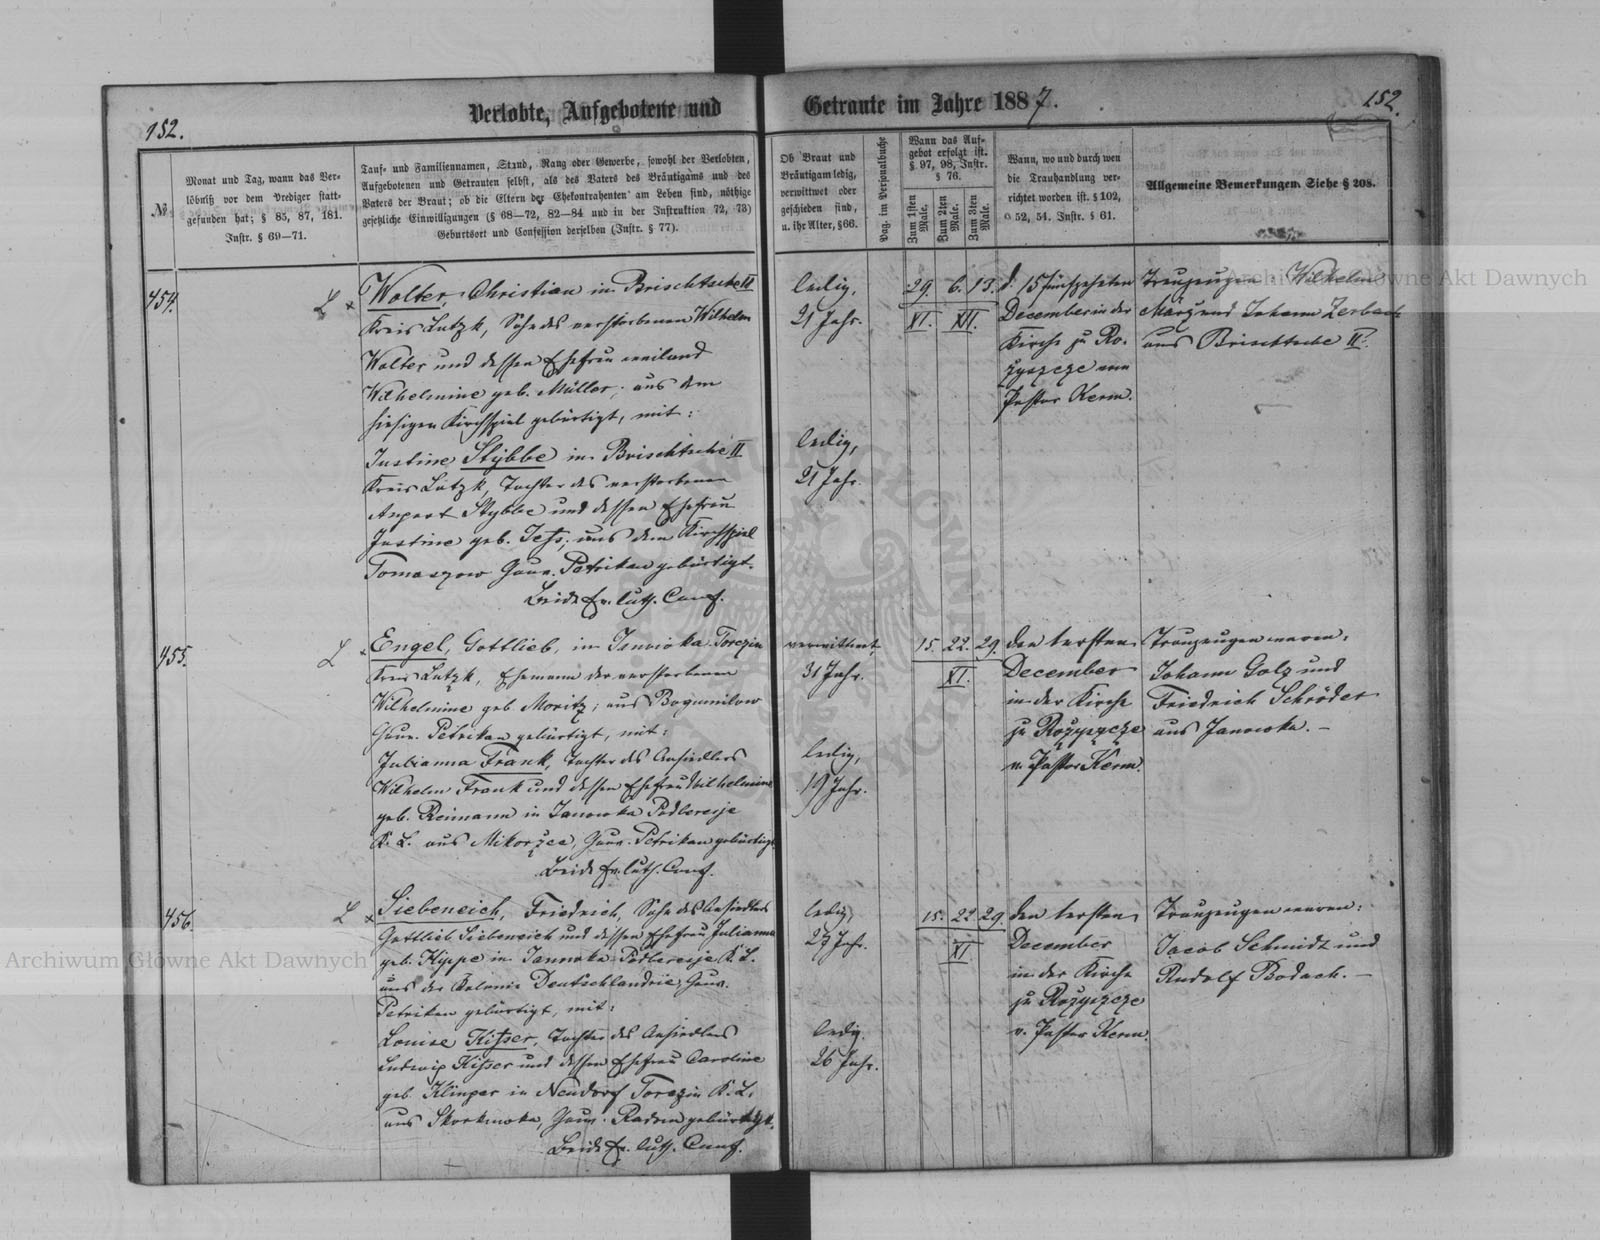 Verlobte, Aufgebotene und
Getraute im Jahre 1887.
152.
152.
№
Monat und Tag, wann das Ver-
löbniß vor dem Prediger statt-
gefunden hat; § 85, 87, 181.
Instr. § 69—71.
Tauf- und Familiennamen, Stand, Rang oder Gewerbe, sowohl der Verlobten,
Aufgebotenen und Getrauten selbst, als des Vaters des Bräutigams und des
Vaters der Braut; ob die Eltern der Ehekontrahenten am Leben sind, nöthige
gesetzliche Einwilligungen (§ 68—72, 82—84 und in der Instruktion 72, 73)
Geburtsort und Confession derselben (Instr. § 77).
Ob Braut und
Bräutigam ledig,
verwittwet oder
geschieden sind,
u. ihr Alter, § 66.
Pag. im Personalbuche
Wann das Auf-
gebot erfolgt ist.
§ 97, 98, Instr.
§ 76.
Zum 1sten Male.
Zum 2ten Male.
Zum 3ten Male.
Wann, wo und durch wen
die Trauhandlung ver-
richtet worden ist. § 102,
52, 54. Instr. § 61.
Allgemeine Bemerkungen. Siehe § 208.
454.
L x
Walter, Christian in Brischtsche II
Kreis Lutzk, Sohn des verstorbenen Wilhelm
Walter und dessen Ehefrau weiland
Wilhelmine geb. Müller; aus dem
hiesigen Kirchspiel gebürtigt, mit:
Justine Stybbe in Brischtsche II
Kreis Lutzk, Tochter des verstorbenen
Stybbe und dessen Ehefrau
Justine geb. Jess; aus dem Kirchspiel
Tomaszow Gouv. Petrikau gebürtigt.
Beide Ev. luth. Conf.
ledig,
21 Jahr.
ledig,
21 Jahr.
29. 6. 13.
XI. XII.
d. 15 fünfzehnten
December in der
Kirche zu Ro-
zyszcze von
Pastor Kerm.
Trauzeugen Wilhelm
März und Johann Zerbach
aus Brischtsche II.
455.
L x
Engel, Gottlieb, in Janowka-Torczin
Kreis Lutzk, Ehemann der verstorbenen
Wilhelmine geb. Moritz; aus Bogumilow
Gouv. Petrikau gebürtigt, mit:
Julianna Frank, Tochter des Ansiedlers
Wilhelm Frank und dessen Ehefrau Wilhelmine
geb. Reimann in Janowka Podleresje
K. L. aus Mikorzec, Gouv. Petrikau gebürtigt
Beide Ev. luth. Conf.
verwittwet,
31 Jahr.
ledig,
19 Jahr.
15. 22. 29.
XI.
den ersten
December
in der Kirche
zu Rożyszcze
v. Pastor Kerm.
Trauzeugen waren:
Johann Golz und
Friedrich Schröder
aus Janowka. —
456.
L x
Siebeneich, Friedrich, Sohn des Ansiedlers
Gottlieb Siebeneich und dessen Ehefrau Julianna
geb. Hippe in Janowka-Podleresje K. L.
aus der Kolonie Deutschlandrie, Gouv.
Petrikau gebürtigt, mit:
Louise Kisser, Tochter des Ansiedlers
Ludwig Kisser und dessen Ehefrau Caroline
geb. Klinger in Neudorf Torczin K. L.
aus Gouv. Radom gebürtigt.
Beide Ev. luth. Conf.
ledig,
27 Jahr.
ledig.
26 Jahr.
15. 22. 29.
XI.
den ersten
December
in der Kirche
zu Rożyszcze
v. Pastor Kerm.
Trauzeugen waren:
Jacob Schmidt und
Rudolf Bodach. —
Archiwum Główne Akt Dawnych
Archiwum Główne Akt Dawnych